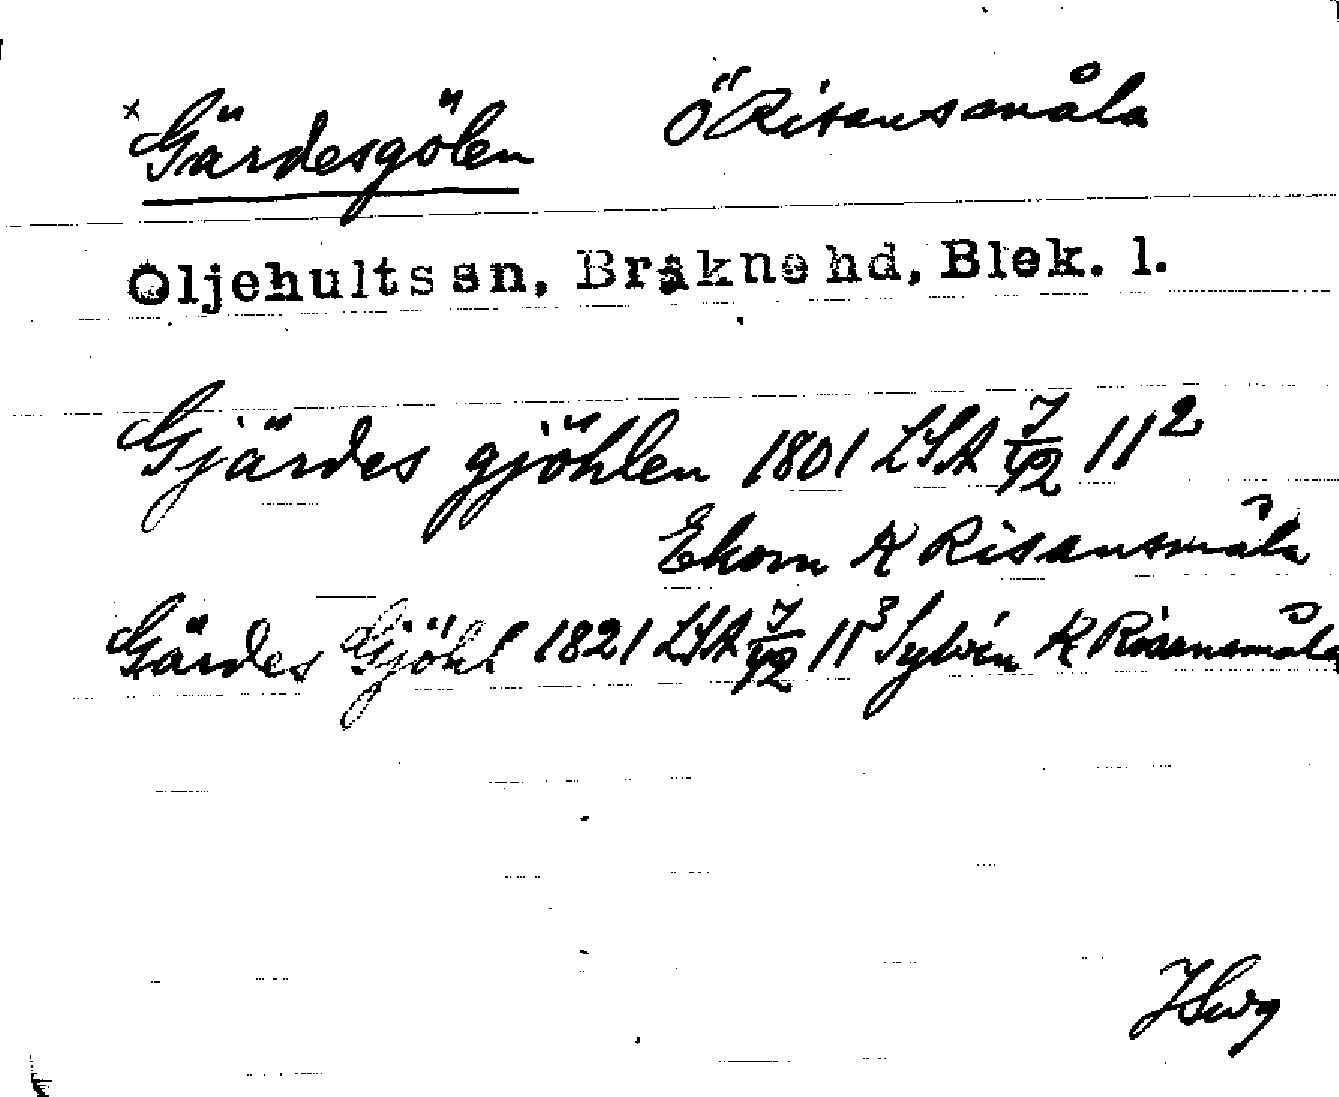 x Gärdesgölen Ö Risansmåla
Öljehults sn, Bräkne hd, Blek. l.
Gjärdes gjöhlen 1801 LSA J/42 11²
Ekorn K Risansmåla
Gärdes Gjöhl 1821 LSA J/42 11³ Sylvin K Risansmåla